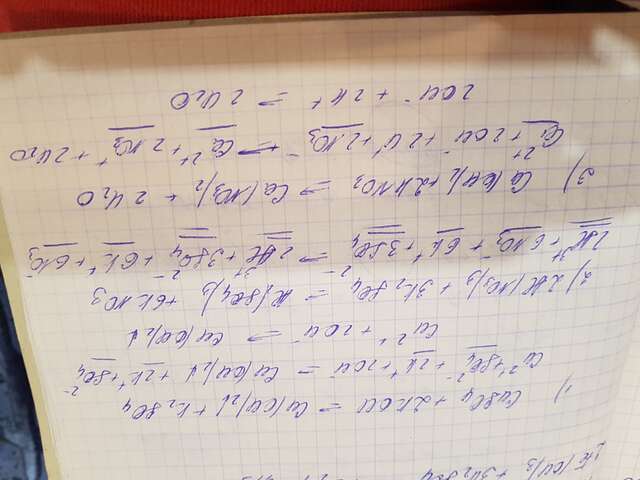 2Al(OH)3 + 3K2SO4
1) CuSO4 + 2KOH = Cu(OH)2↓ + K2SO4
Cu2+ + SO4 2- + 2K+ + 2OH- = Cu(OH)2↓ + 2K+ + SO4 2-
Cu2+ + 2OH- = Cu(OH)2↓
2) 2Al(NO3)3 + 3K2SO4 = Al2(SO4)3 + 6KNO3
2Al3+ + 6NO3- + 6K+ + 3SO4 2- = 2Al3+ + 3SO4 2- + 6K+ + 6NO3-
3) Ca(OH)2 + 2HNO3 = Ca(NO3)2 + 2H2O
Ca2+ + 2OH- + 2H+ + 2NO3- = Ca2+ + 2NO3+ + 2H2O
2OH- + 2H+ = 2H2O